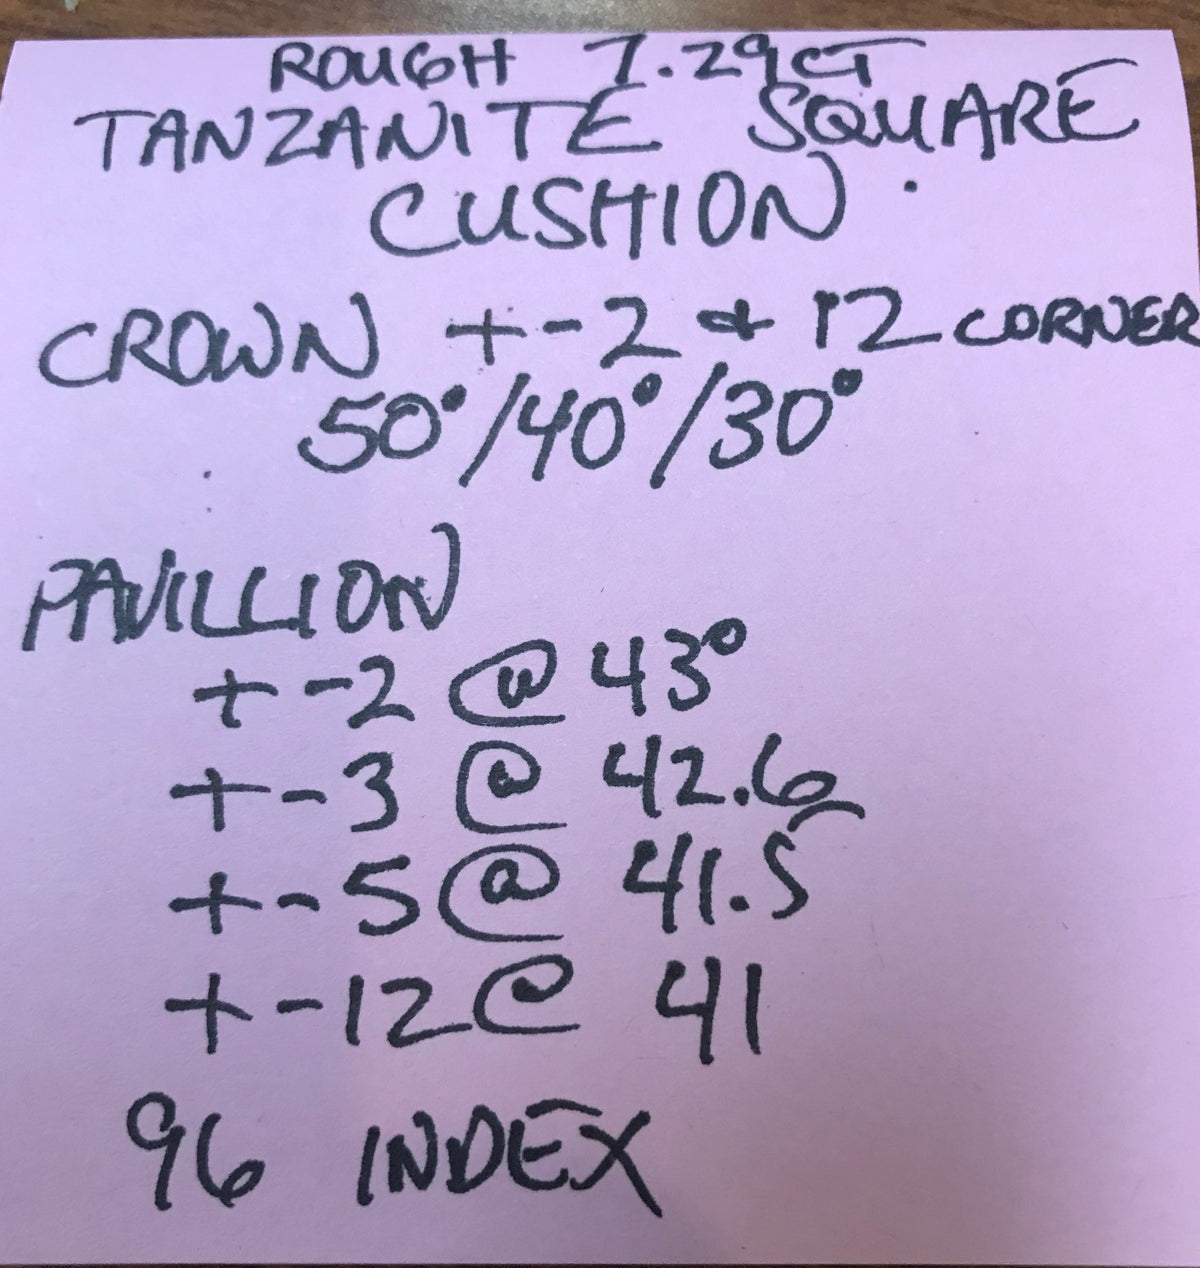 ROUGH 7.29CT
TANZANITE SQUARE
CUSHION
CROWN +-2 & 12 CORNER
50°/40°/30°
PAVILLION
+-2 @ 43°
+-3 @ 42.6
+-5 @ 41.5
+-12 @ 41
96 INDEX